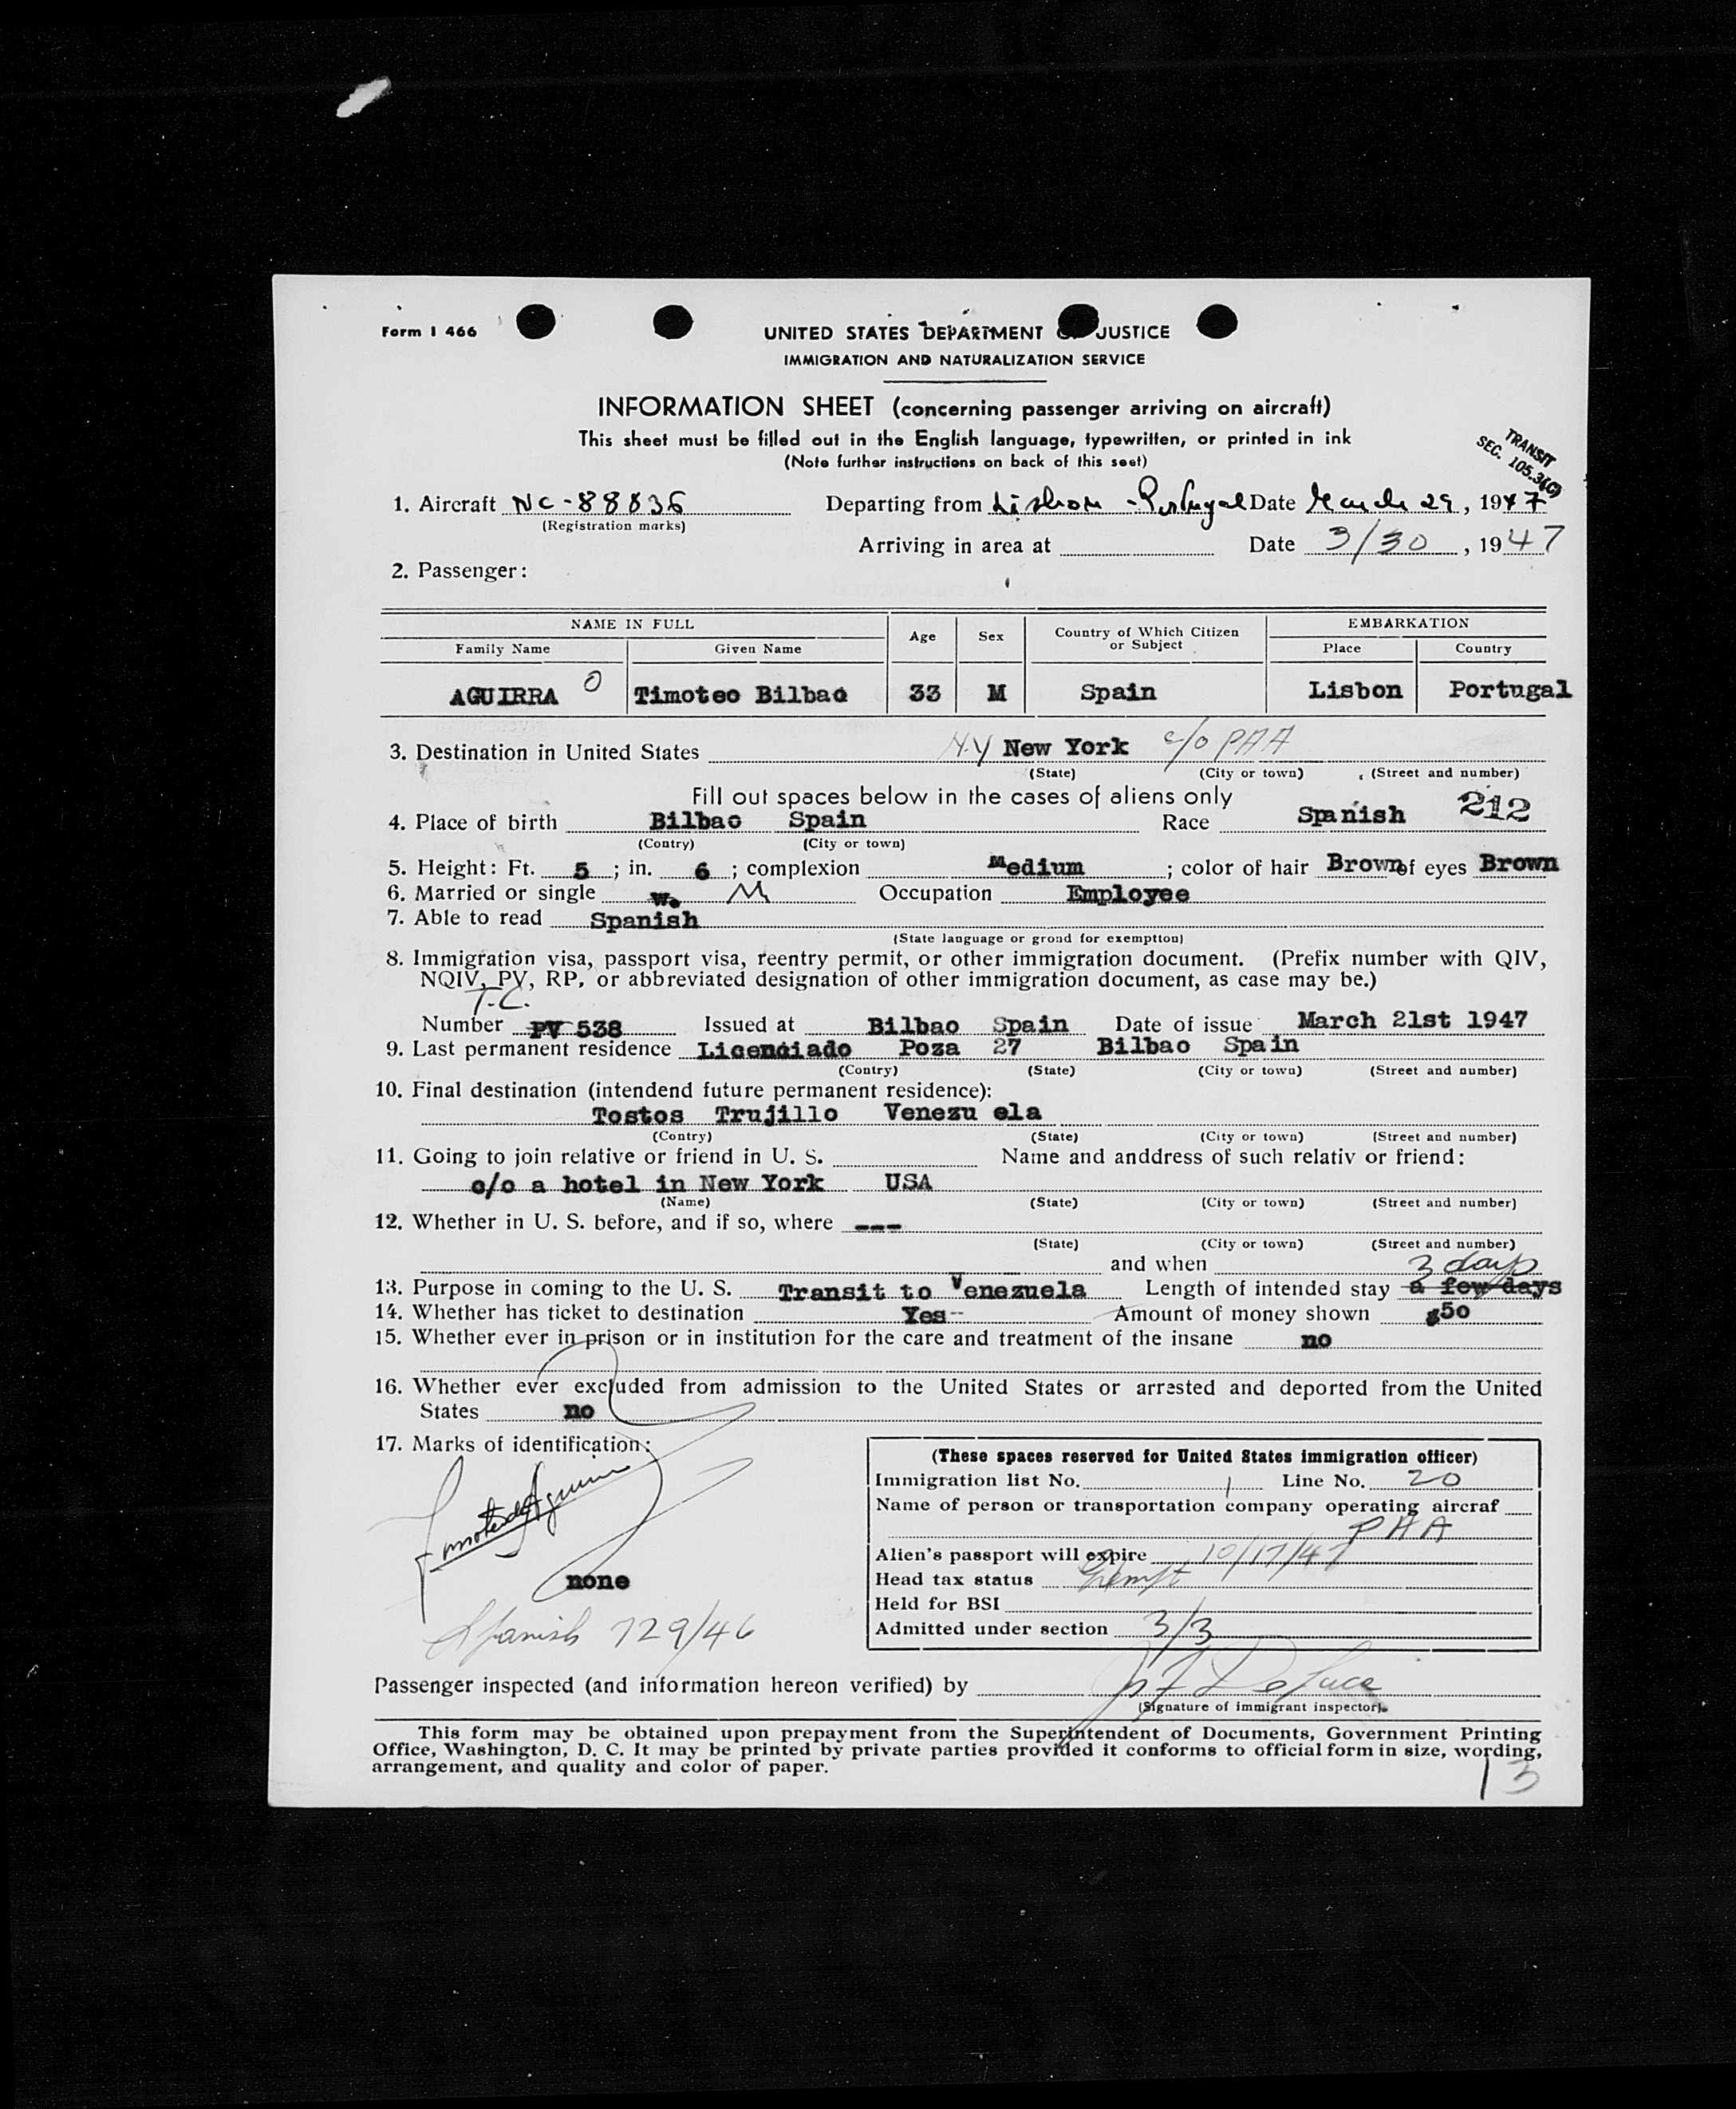 Form I 466
UNITED STATES DEPARTMENT OF JUSTICE
IMMIGRATION AND NATURALIZATION SERVICE
INFORMATION SHEET (concerning passenger arriving on aircraft)
This sheet must be filled out in the English language, typewritten, or printed in ink
(Note further instructions on back of this seet)
TRANSIT
SEC. 105.3(C)
1. Aircraft NC-88836 Departing from Lisbon - Portugal Date March 29, 1947
(Registration marks)
Arriving in area at Date 3/30, 1947
2. Passenger:
NAME IN FULL Age Sex Country of Which Citizen or Subject EMBARKATION
Family Name Given Name Place Country
AGUIRRA O Timoteo Bilbao 33 M Spain Lisbon Portugal
3. Destination in United States N.Y New York c/o PAA
(State) (City or town) (Street and number)
Fill out spaces below in the cases of aliens only
4. Place of birth Bilbao Spain Race Spanish 212
(Contry) (City or town)
5. Height: Ft. 5 ; in. 6 ; complexion Medium ; color of hair Brown of eyes Brown
6. Married or single w. M Occupation Employee
7. Able to read Spanish
(State language or groud for exemptton)
8. Immigration visa, passport visa, reentry permit, or other immigration document. (Prefix number with QIV,
NQIV, PV, RP, or abbreviated designation of other immigration document, as case may be.)
T.C.
Number PV 538 Issued at Bilbao Spain Date of issue March 21st 1947
9. Last permanent residence Licenciado Poza 27 Bilbao Spain
(Contry) (State) (City or town) (Street and number)
10. Final destination (intendend future permanent residence):
Tostos Trujillo Venezu ela
(Contry) (State) (City or town) (Street and number)
11. Going to join relative or friend in U. S. Name and anddress of such relativ or friend:
c/o a hotel in New York USA
(Name) (State) (City or town) (Street and number)
12. Whether in U. S. before, and if so, where ---
(State) (City or town) (Street and number)
and when
3 days
13. Purpose in coming to the U. S. Transit to Venezuela Length of intended stay a few days
14. Whether has ticket to destination Yes-- Amount of money shown $50
15. Whether ever in prison or in institution for the care and treatment of the insane no
16. Whether ever excluded from admission to the United States or arrested and deported from the United
States no
17. Marks of identification:
Timoteo de Aguirre
none
Spanish 729/46
(These spaces reserved for United States immigration officer)
Immigration list No. 1 Line No. 20
Name of person or transportation company operating aircraf
PAA
Alien's passport will expire 10/17/47
Head tax status Exempt
Held for BSI
Admitted under section 3/3
Passenger inspected (and information hereon verified) by
(Signature of immigrant inspector).
This form may be obtained upon prepayment from the Superintendent of Documents, Government Printing
Office, Washington, D. C. It may be printed by private parties provided it conforms to official form in size, wording,
arrangement, and quality and color of paper.
13